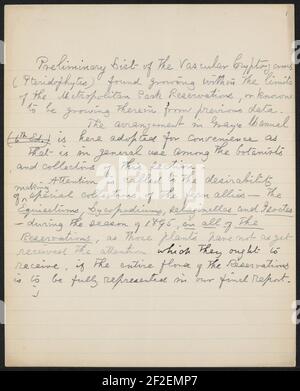 Preliminary List of the Vascular Cryptogams
(Pteridophytes) found growing within the limits
of the Metropolitan Park Reservations, or known
to be growing therein from previous data.
The arrangement in Gray's Manual
(6th Ed.) is here adopted for convenience as
that is in general use among the botanists
and collectors of this section.
Attention is called to the desirability
making
of special collections of the fern allies — the
Equisetums, Lycopodiums, Selaginellas and Isoetes
— during the season of 1895, in all of the
Reservations, as those plants have not as yet
received the attention which they ought to
receive, if the entire flora of the Reservations
is to be fully represented in our final report.
alamy
Image ID: 2F2EMP7
www.alamy.com